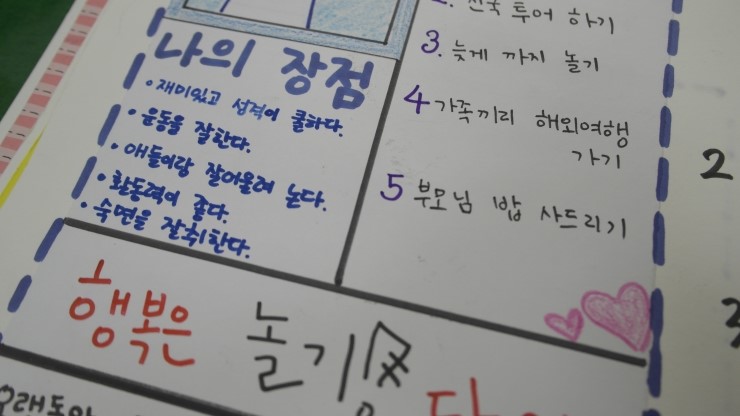 나의 장점
• 재미있고 성격이 쿨하다.
• 운동을 잘한다.
• 애들이랑 잘어울려 논다.
• 활동력이 좋다.
• 숙면을 잘취한다.
2. 전국 투어 하기
3. 늦게 까지 놀기
4 가족끼리 해외여행
가기
5 부모님 밥 사드리기
행복은 놀기
2
3